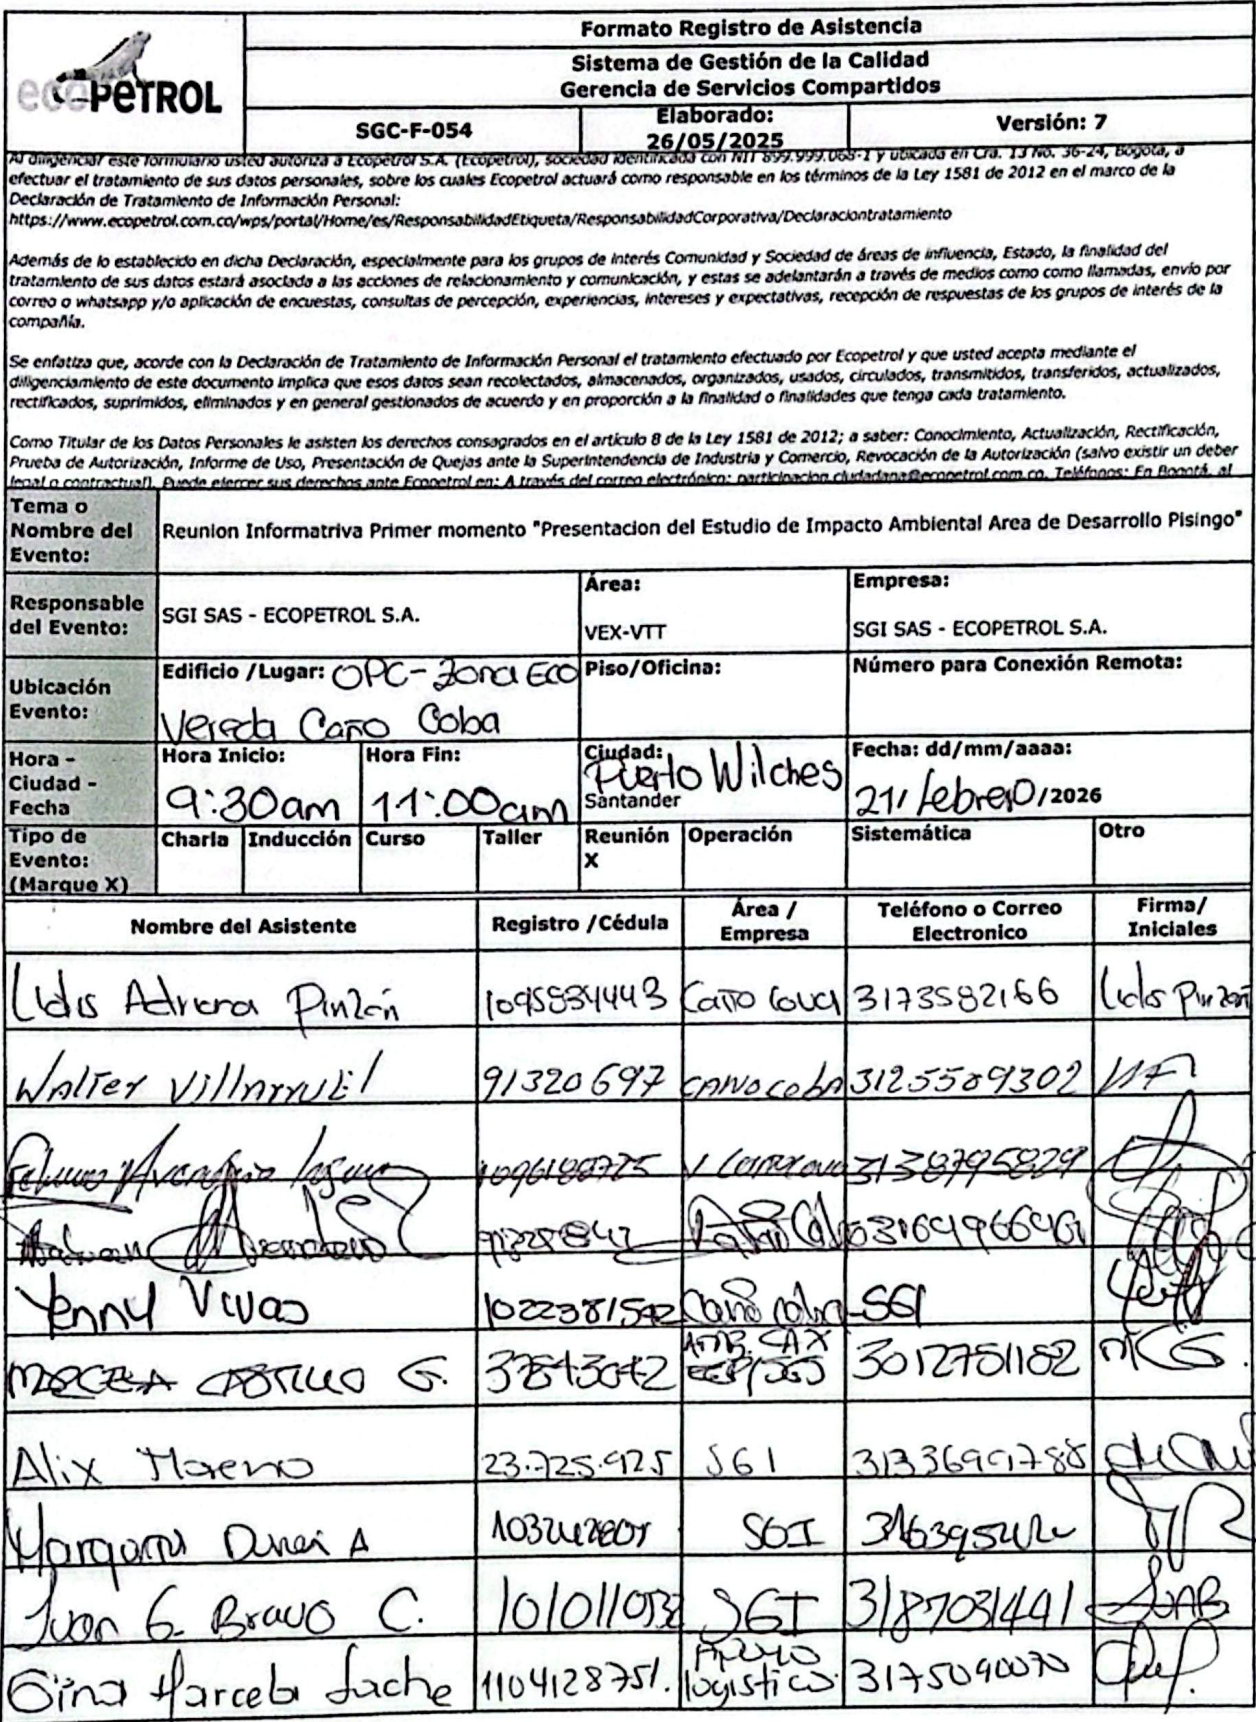 ecoPETROL
Formato Registro de Asistencia
Sistema de Gestión de la Calidad
Gerencia de Servicios Compartidos
SGC-F-054
Elaborado:
26/05/2025
Versión: 7
Al diligenciar este formulario usted autoriza a Ecopetrol S.A. (Ecopetrol), sociedad identificada con NIT 899.999.068-1 y ubicada en Cra. 13 No. 36-24, Bogotá, a
efectuar el tratamiento de sus datos personales, sobre los cuales Ecopetrol actuará como responsable en los términos de la Ley 1581 de 2012 en el marco de la
Declaración de Tratamiento de Información Personal:
https://www.ecopetrol.com.co/wps/portal/Home/es/ResponsabilidadEtiqueta/ResponsabilidadCorporativa/Declaraciontratamiento
Además de lo establecido en dicha Declaración, especialmente para los grupos de interés Comunidad y Sociedad de áreas de influencia, Estado, la finalidad del
tratamiento de sus datos estará asociada a las acciones de relacionamiento y comunicación, y estas se adelantarán a través de medios como como llamadas, envío por
correo o whatsapp y/o aplicación de encuestas, consultas de percepción, experiencias, intereses y expectativas, recepción de respuestas de los grupos de interés de la
compañía.
Se enfatiza que, acorde con la Declaración de Tratamiento de Información Personal el tratamiento efectuado por Ecopetrol y que usted acepta mediante el
diligenciamiento de este documento implica que esos datos sean recolectados, almacenados, organizados, usados, circulados, transmitidos, transferidos, actualizados,
rectificados, suprimidos, eliminados y en general gestionados de acuerdo y en proporción a la finalidad o finalidades que tenga cada tratamiento.
Como Titular de los Datos Personales le asisten los derechos consagrados en el artículo 8 de la Ley 1581 de 2012; a saber: Conocimiento, Actualización, Rectificación,
Prueba de Autorización, Informe de Uso, Presentación de Quejas ante la Superintendencia de Industria y Comercio, Revocación de la Autorización (salvo existir un deber
legal o contractual). Puede ejercer sus derechos ante Ecopetrol en: A través del correo electrónico: participacion.ciudadana@ecopetrol.com.co. Teléfonos: En Bogotá, al
Tema o Nombre del Evento: Reunion Informatriva Primer momento "Presentacion del Estudio de Impacto Ambiental Area de Desarrollo Pisingo"
Responsable del Evento: SGI SAS - ECOPETROL S.A.
Área: VEX-VTT
Empresa: SGI SAS - ECOPETROL S.A.
Ubicación Evento: Edificio /Lugar: OPC - Zona Eco
Vereda Caño Coba
Piso/Oficina:
Número para Conexión Remota:
Hora - Ciudad - Fecha
Hora Inicio: 9:30am
Hora Fin: 11:00am
Ciudad: Puerto Wilches
Santander
Fecha: dd/mm/aaaa: 21/febrero/2026
Tipo de Evento: (Marque X) Charla Inducción Curso Taller Reunión X Operación Sistemática Otro
Nombre del Asistente Registro /Cédula Área / Empresa Teléfono o Correo Electronico Firma/ Iniciales
Lidis Adriana Pinzón 1095834443 Caño Cova 3173582166 Lidis Pinzón
Walter Villarruel 91320697 CANO CobA 3125589302
1096188725 3138795829
Caño Coba 3164966461
Yenny Vivas 1022381542 Caño coba - SGI
CASTILLO G. 37843042 3012751182 MCG.
Alix Moreno 23.725.925 SGI 3133699788
SGI
Juan G. Bravo C. SGI 3187031441
Gina Marcela Lache 1104128751. Apoyo logistico. 3175090070